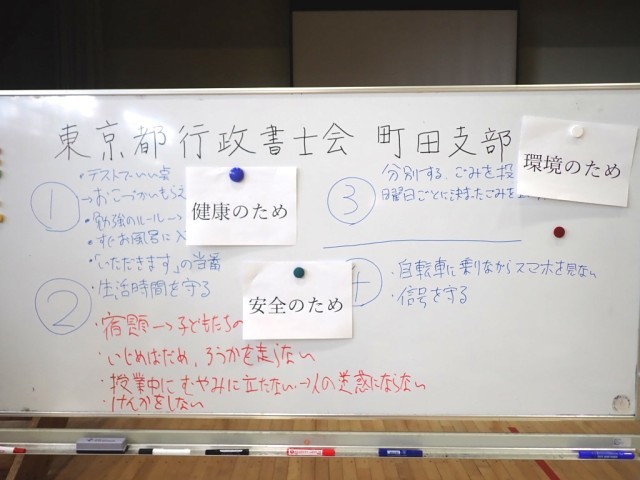 東京都行政書士会 町田支部
環境のため
①
・テストでいい点
→おこづかいもらえ
・勉強のルール→
・すぐお風呂に入
・「いただきます」の当番
・生活時間を守る
健康のため
③
分別する、ごみを投
曜日ごとに決まったごみを
②
・宿題→子どもたちの
・いじめはだめ、ろうかを走らない
・授業中にむやみに立たない→人の迷惑にならない
・けんかをしない
安全のため
4
・自転車に乗りながらスマホを見ない
・信号を守る